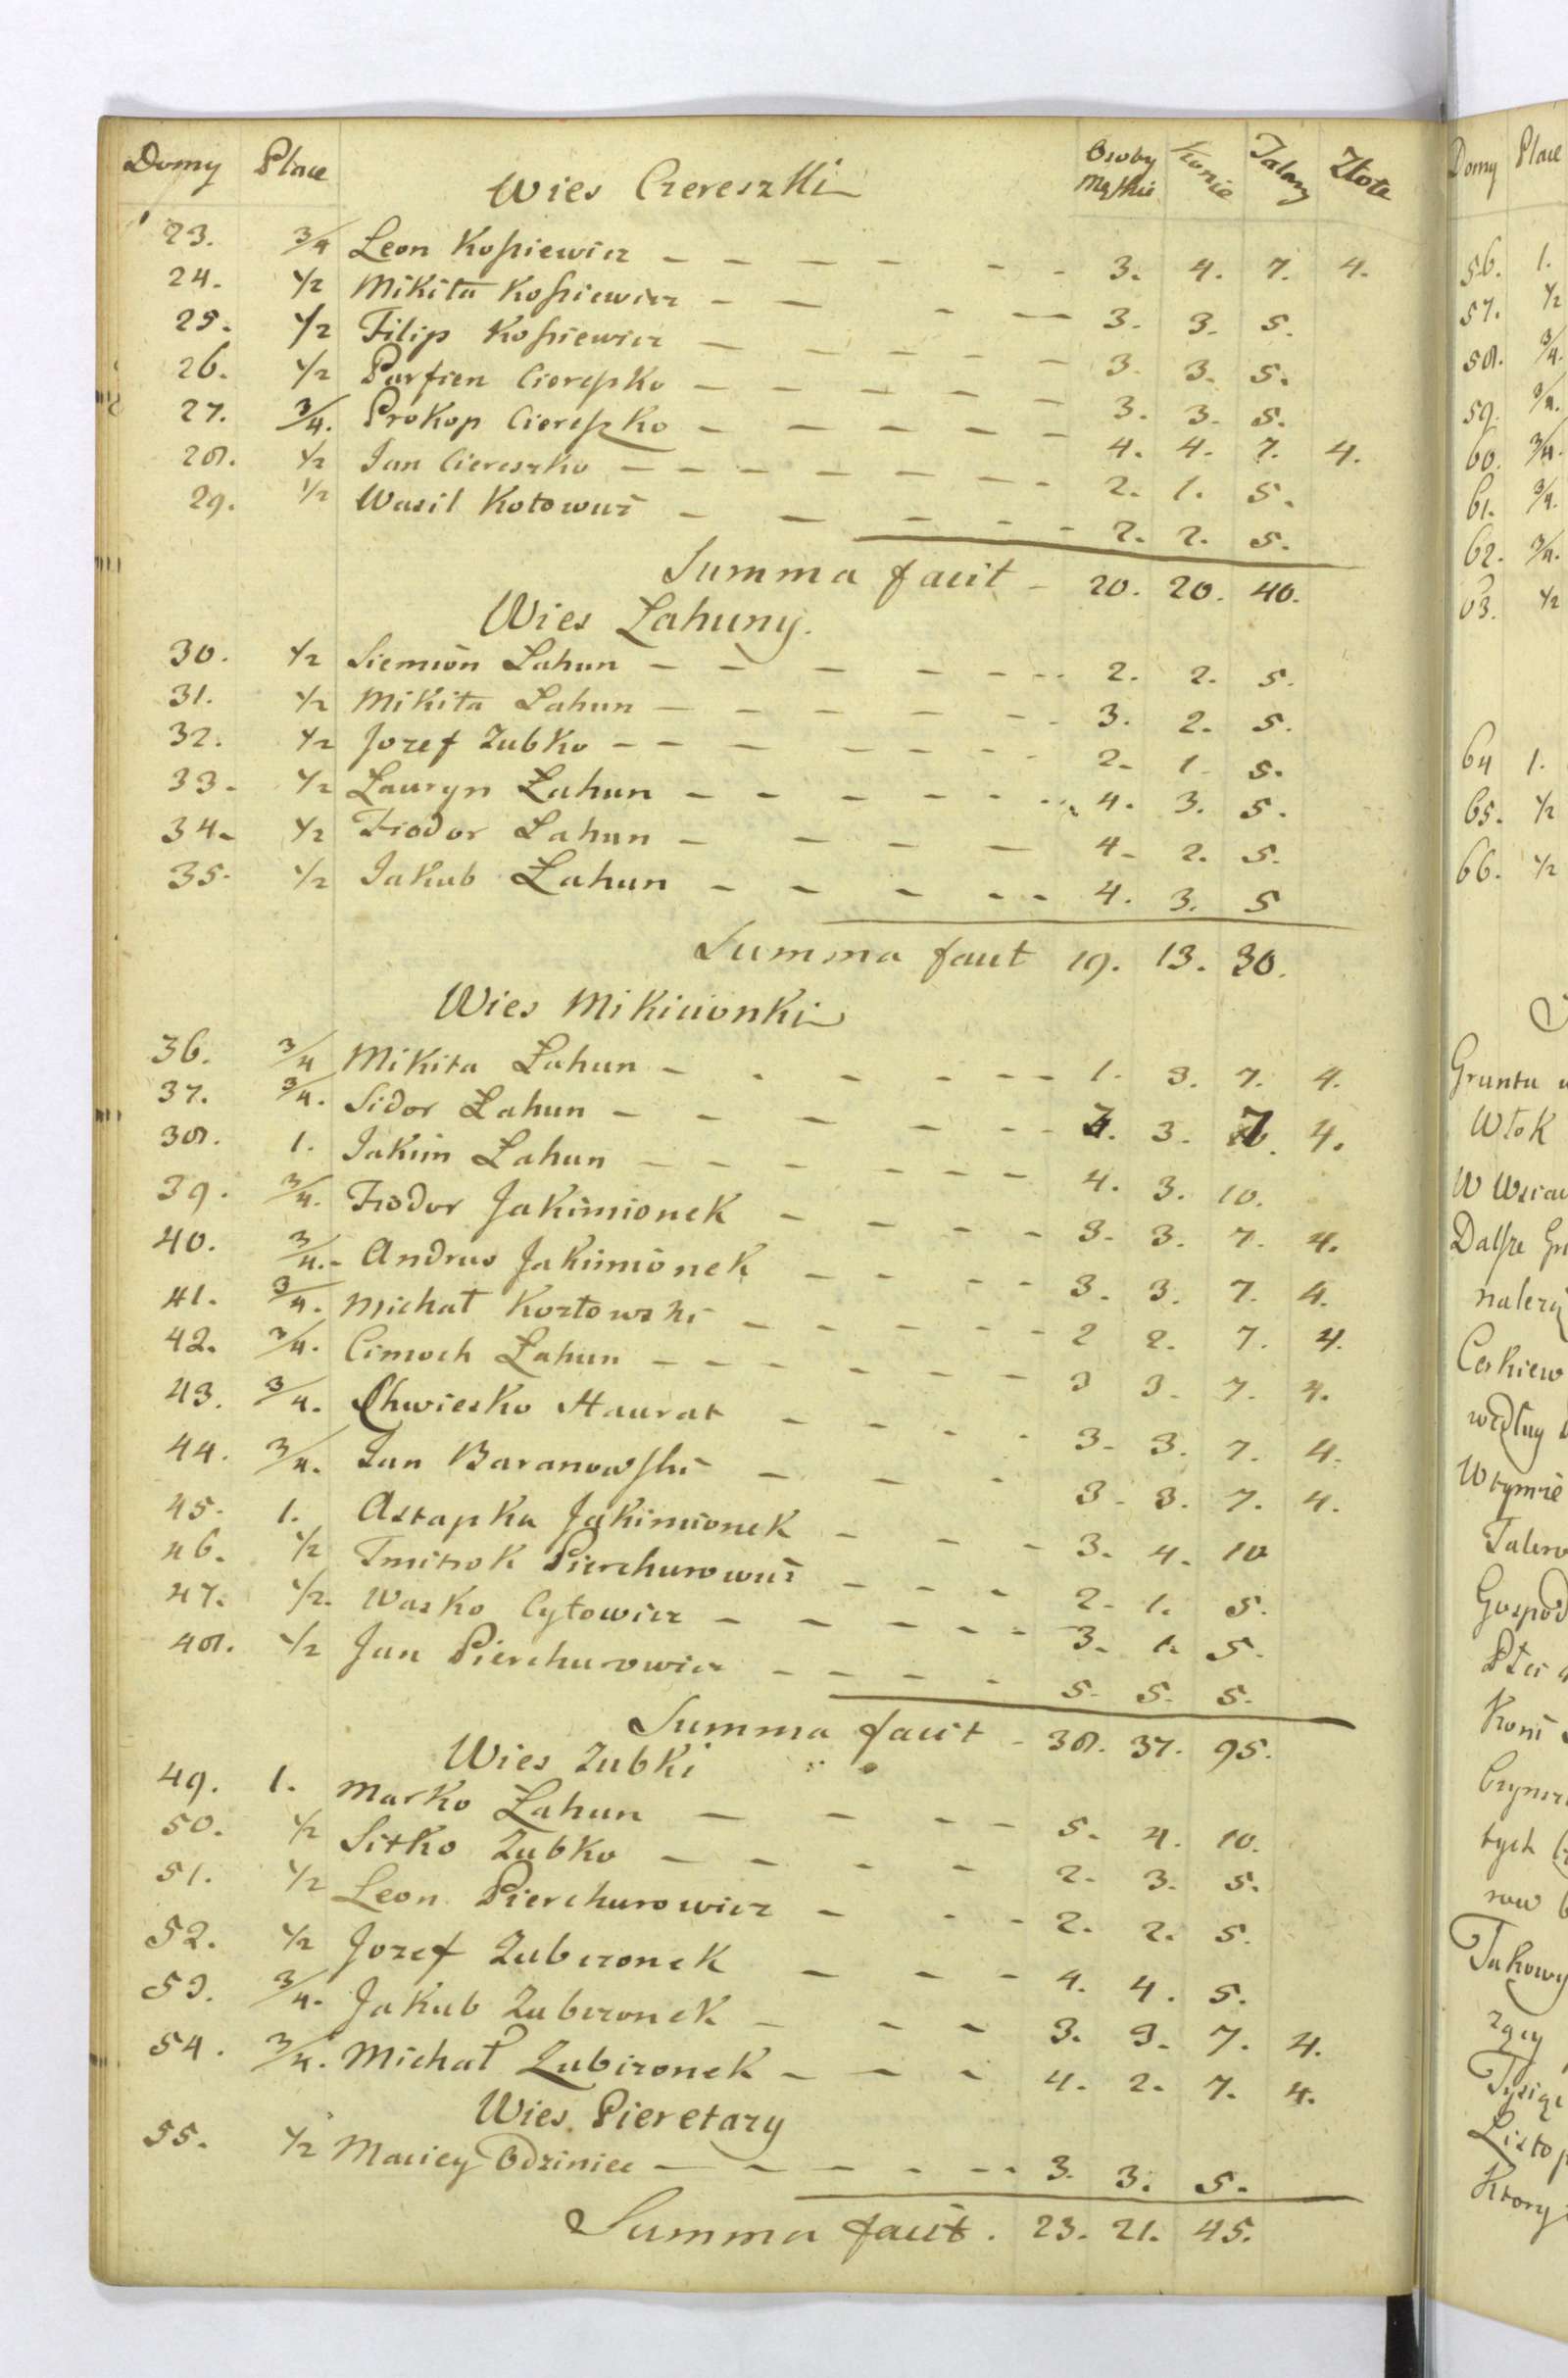 Domy Place Wies Czereszki Osoby Męskie Konie Talary Złote
23. 3/4 Leon Kosiewicz - - - - - - 3. 4. 7. 4.
24. 1/2 Mikita Kosiewicz - - - - 3. 3. 5.
25. 1/2 Filip Kosiewicz - - - - - 3. 3. 5.
26. 1/2 Parfien Ciereszko - - - - - 3. 3. 5.
27. 3/4. Prokop Ciereszko - - - - - 4. 4. 7. 4.
28. 1/2 Jan Ciereszko - - - - - - - 2. 1. 5.
29. 1/2 Wasil Kotowicz - - - - - 2. 2. 5.
Summa facit - 20. 20. 40.
Wies Łahuny.
30. 1/2 Siemion Łahun - - - - - - - 2. 2. 5.
31. 1/2 Mikita Łahun - - - - - - - 3. 2. 5.
32. 1/2 Jozef Zubko - - - - - - - 2. 1. 5.
33. 1/2 Lauryn Łahun - - - - - - 4. 3. 5.
34. 1/2 Fiodor Łahun - - - - 4. 2. 5.
35. 1/2 Jakub Łahun - - - - - 4. 3. 5
Summa facit 19. 13. 30.
Wies Mikicionki
36. 3/4 Mikita Łahun - - - - - - 1. 3. 7. 4.
37. 3/4. Sidor Łahun - - - - - - 3. 3. 7. 4.
38. 1. Jakim Łahun - - - - - - 4. 3. 10.
39. 3/4. Fiodor Jakimionek - - - - 3. 3. 7. 4.
40. 3/4. Andrus Jakimionek - - - - 3. 3. 7. 4.
41. 3/4. Michał Kozłowski - - - - - 2 2. 7. 4.
42. 3/4. Cimoch Łahun - - - - - - 3 3. 7. 4.
43. 3/4. Chwiesko Haurat - - - - 3. 3. 7. 4.
44. 3/4. Jan Baranowski - - - 3. 3. 7. 4.
45. 1. Astapka Jakimionek - - - - 3. 4. 10
46. 1/2 Tmitrok Pierchurowicz - - - 2. 1. 5.
47. 1/2. Wasko Cytowicz - - - - - - 3. 1. 5.
48. 1/2 Jan Pierchurowicz - - - - 5. 5. 5.
Summa facit - 38. 37. 95.
Wies Zubki
49. 1. Marko Łahun - - - - 5. 4. 10.
50. 1/2 Sitko Zubko - - - - 2. 3. 5.
51. 1/2 Leon Pierchurowicz - - - 2. 2. 5.
52. 1/2 Jozef Zubczonek - - - 4. 4. 5.
53. 3/4. Jakub Zubczonek - - - 3. 3. 7. 4.
54. 3/4. Michał Zubczonek - - - 4. 2. 7. 4.
Wies Pieretary
55. 1/2 Maciey Odziniec - - - - - - 3. 3. 5.
Summa facit. 23. 21. 45.
Domy Place
56. 1.
57. 1/2
58. 3/4.
59. 3/4.
60. 3/4.
61. 3/4.
62. 3/4.
63. 1/2
64 1.
65. 1/2
66. 1/2
Gruntu
Włok
W
Dalsze
Cerkiew
według
Wtymże
Koni
tych
Ktory